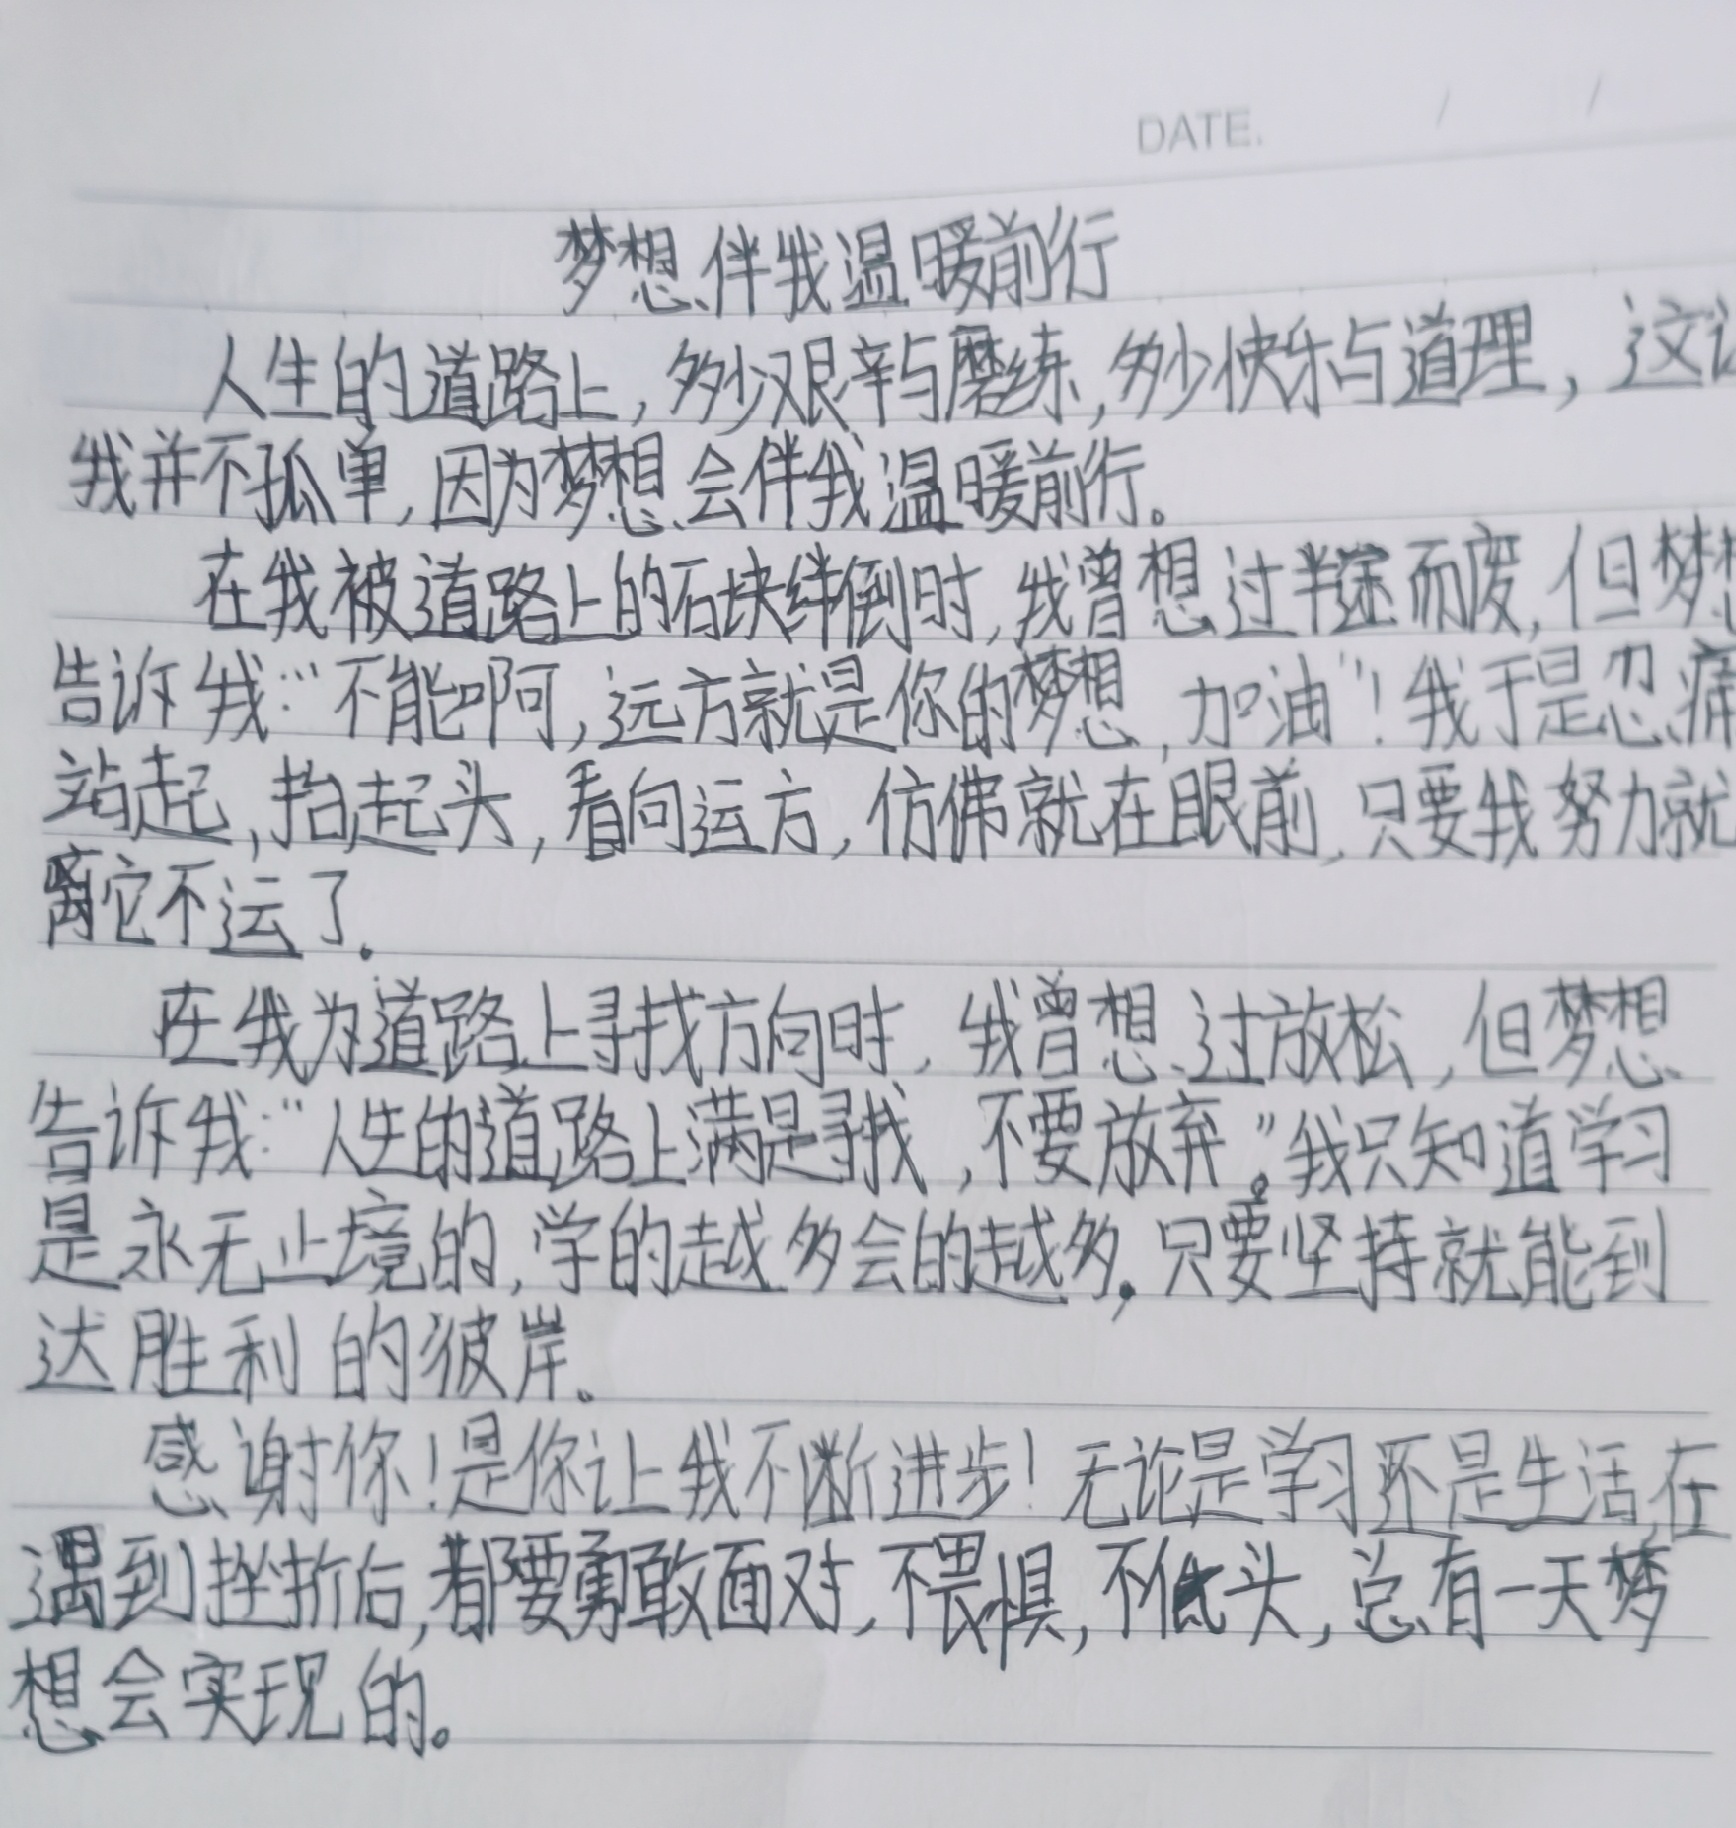 DATE. / /
梦想伴我温暖前行
人生的道路上,多少艰辛与磨练,多少快乐与道理,这让
我并不孤单,因为梦想会伴我温暖前行。
在我被道路上的石块绊倒时,我曾想过半途而废,但梦想
告诉我:“不能啊,远方就是你的梦想,加油”!我于是忍痛
站起,抬起头,看向运方,仿佛就在眼前,只要我努力就
离它不运了.
在我为道路上寻找方向时,我曾想过放松,但梦想
告诉我:“人生的道路上满是寻找,不要放弃。”我只知道学习
是永无止境的,学的越多会的越多,只要坚持就能到
达胜利的彼岸。
感谢你!是你让我不断进步!无论是学习还是生活,在
遇到挫折后,都要勇敢面对,不畏惧,不低头,总有一天梦
想会实现的。